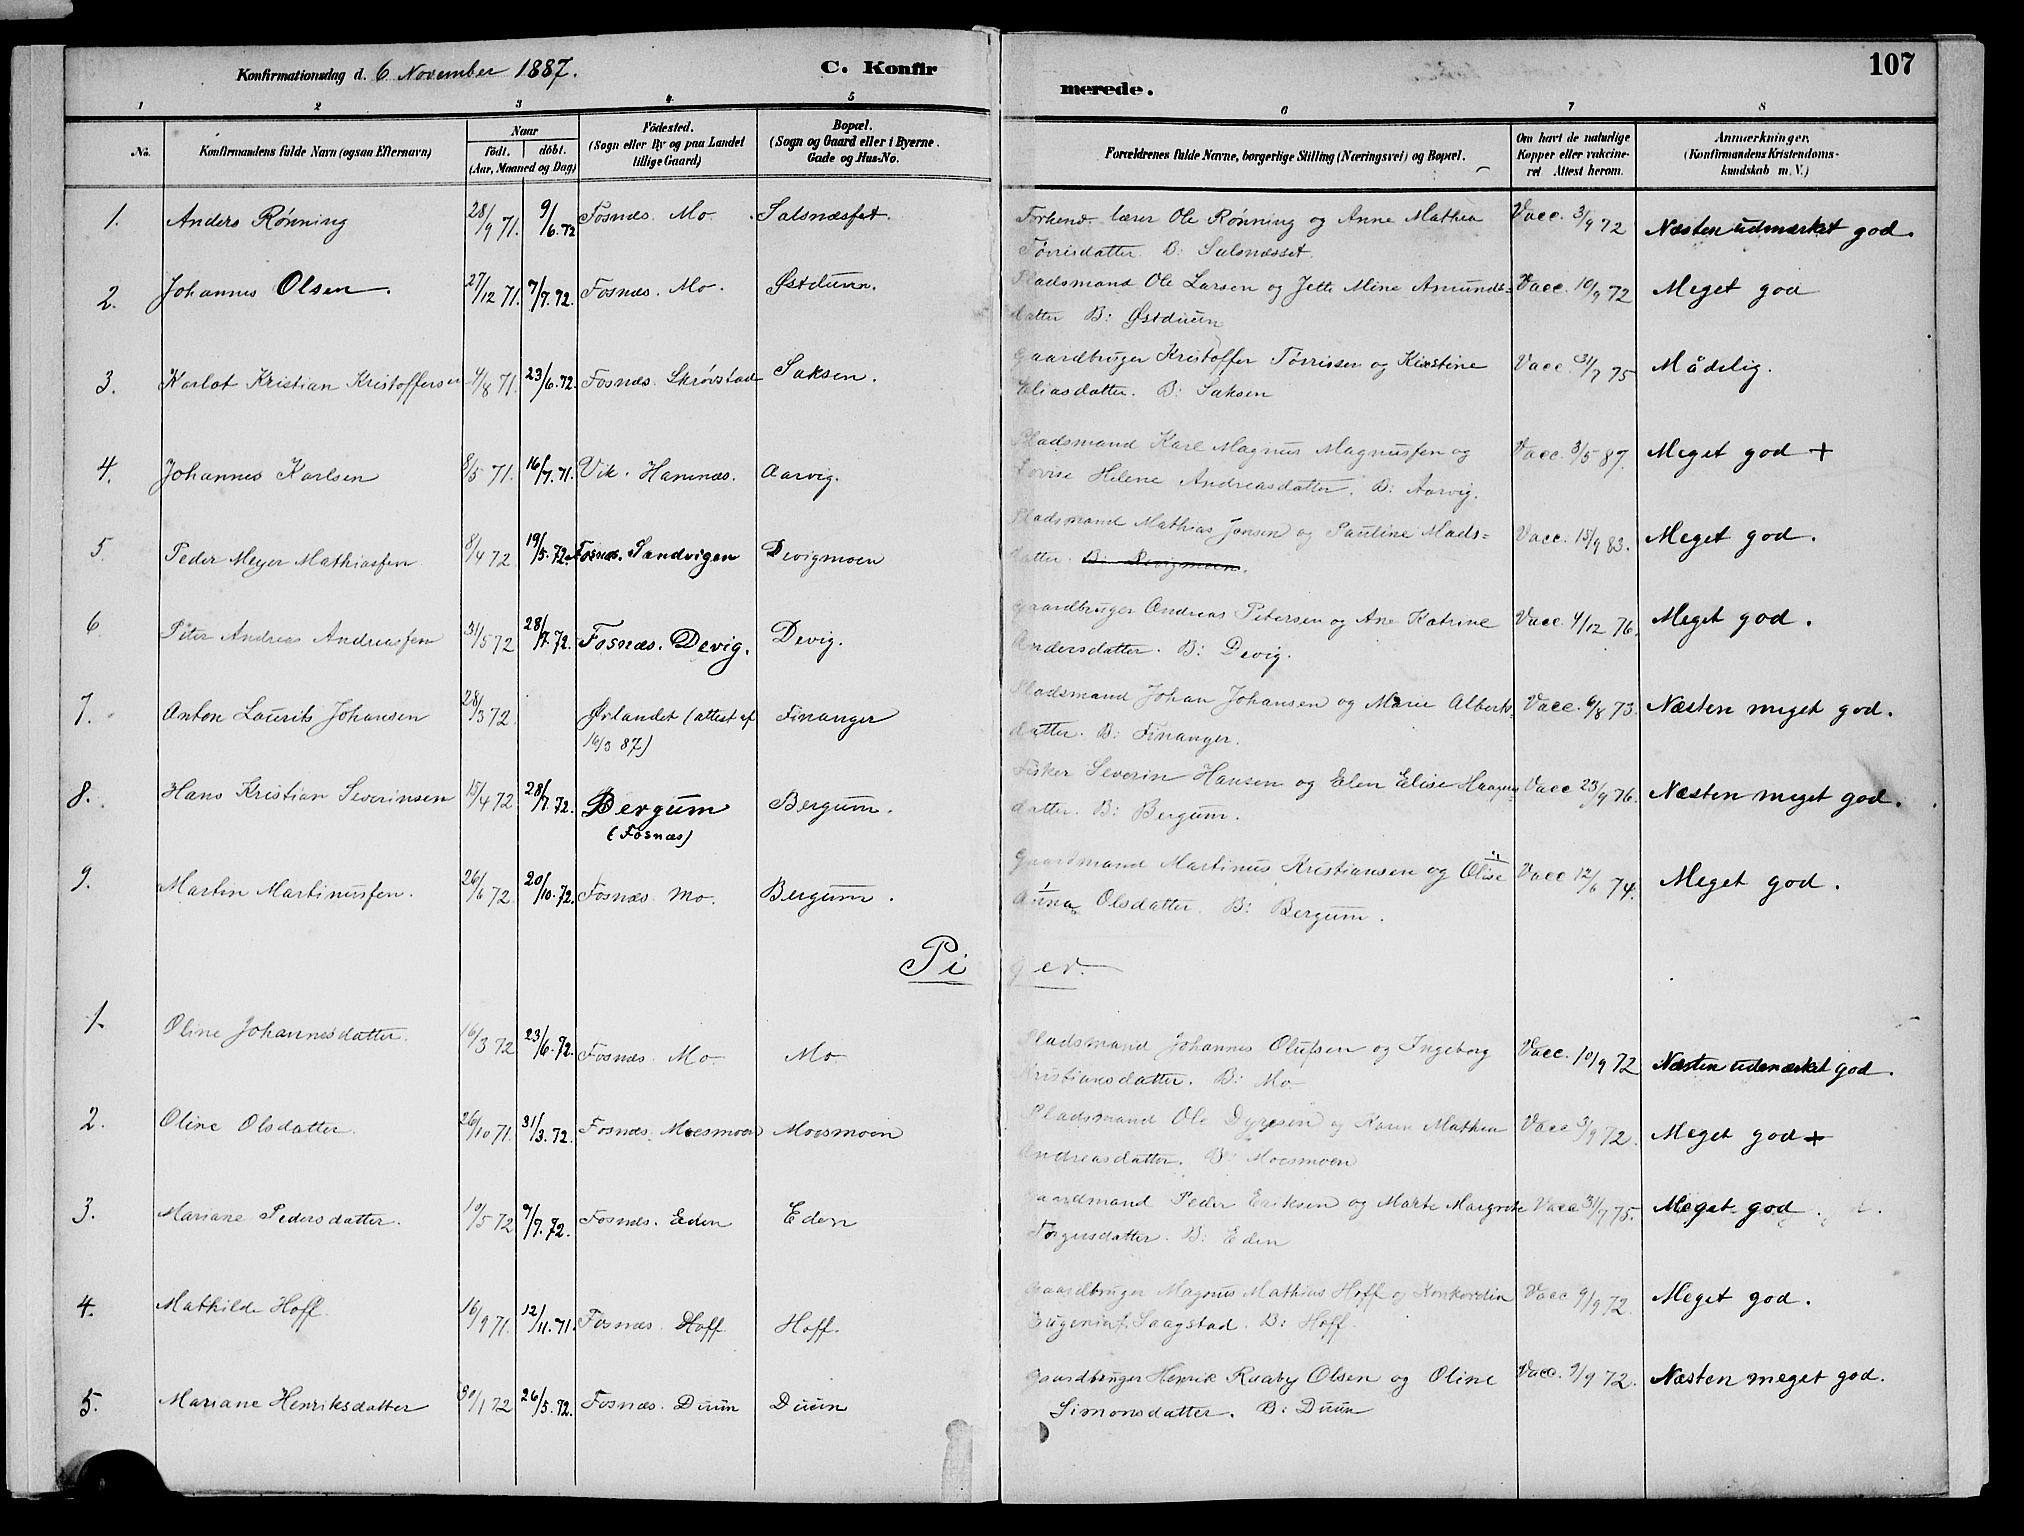 Konfirmationsdag d. 6 November 1887. C. Konfir
merede. 107
1 2 3 4 5 6 7 8
No. Konfirmandens fulde Navn (ogsaa Efternavn) Naar födt. döbt. (Aar, Maaned og Dag) Födested. (Sogn eller By og paa Landet tillige Gaard) Bopæl. (Sogn og Gaard eller i Byerne. Gade og Hus-No. Forældrenes fulde Navne, borgerlige Stilling (Næringsvei) og Bopæl. Om havt de naturlige Kopper eller vakcineret Attest herom. Anmærkninger. (Konfirmandens Kristendomskundskab m. V.)
1. Anders Rönning 28/9 71. 9/6. 72 Fosnæs. Mo. Salsnæsset. Forhend. lærer Ole Rönning og Anne Mathea Vacc. 3/9 72 Næsten udmærket god.
Törrisdatter B: Salsnæsset.
2. Johannes Olsen. 27/12 71. 7/7. 72. Fosnæs. Mo. Østduun. Pladsmand Ole Larsen og Jette Mine Amunds= Vacc. 10/9 72 Meget god
datter B: Østduun
3. Karlot Kristian Kristoffersen 4/8 71. 23/6. 72. Fosnæs. Skrövstad Saksen. Gaardbruger Kristoffer Törrissen og Kirstine Vacc. 31/7 75 Mådelig.
Eliasdatter. B: Saksen
4. Johannes Karlsen 8/5 71. 16/7. 71. Vik. Hannæs. Aarvig. Pladsmand Karl Magnus Magnussen og Vacc. 3/5 87. Meget god +
Lovise Helene Andreasdatter. B: Aarvig.
5. Peder Meyer Mathiassen 8/4 72 19/5. 72. Fosnæs. Sandvigen Devigmoen Pladsmand Mathias Jensen og Pauline Mads= Vacc. 15/9 83. Meget god.
datter. B: Devigmoen.
6. Peter Andreas Andreassen 31/5 72 28/7. 72. Fosnæs. Devig. Devig. Gaardbruger Andreas Petersen og Ane Katrine Vacc 4/12 76. Meget god.
Andersdatter. B: Devig.
7. Anton Laurits Johansen 28/3 72. Ørlandet (attest af Finanger Pladsmand Johan Johansen og Marie Alberts= Vacc. 6/8 73. Næsten meget god.
16/3 87) datter. B: Finanger.
8. Hans Kristian Severinsen 15/4 72 28/7. 72. Bergum Bergum. Fisker Severin Hansen og Elen Elise Haagens= Vacc 23/9 76. Næsten meget god.
(Fosnæs) datter. B: Bergum.
9. Martin Martinussen. 26/6 72. 20/10. 72. Fosnæs Mo. Bergum. Gaardmand Martinus Kristiansen og Olise Vacc 12/6 74. Meget god.
Anna Olsdatter. B: Bergum.
Pi ger.
1. Oline Johannesdatter. 16/3 72 23/6. 72. Fosnæs. Mo Mo Pladsmand Johannes Olufsen og Ingeborg Vacc. 10/9 72 Næsten udmærket god.
Kristiansdatter. B: Mo
2. Oline Olsdatter. 26/10 71. 31/3. 72. Fosnæs. Moesmoen Moesmoen Pladsmand Ole Dyresen og Karen Mathea Vacc 3/9 72. Meget god +
Andreasdatter. B: Moesmoen
3. Mariane Pedersdatter. 10/5 72 7/7. 72. Fosnæs. Eden Eden Gaardmand Peder Eriksen og Marte Margrete Vacc 31/7 75. Meget god.
Torgusdatter. B: Eden
4. Mathilde Hoff 16/9 71. 12/11. 71. Fosnæs. Hoff Hoff. Gaardbruger Magnus Mathias Hoff og Konkordia Vacc 9/9 72. Meget god.
Eugenia f. Saagstad. B: Hoff.
5. Mariane Henriksdatter 30/1 72 26/5. 72. Fosnæs. Duun Duun Gaardbruger Henrik Raaby Olsen og Oline Vacc. 9/9 72. Næsten meget god.
Simonsdatter. B: Duun